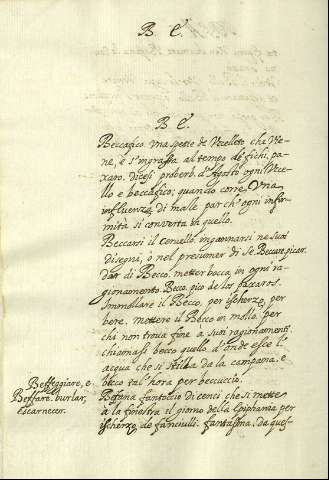 B E.
B E.
Beccafico Vna spetie de Vcelleto che Vie-
ne, e s'ingrassa al tempo de fichi, pa-
xaro. dicesi proverb. d'Agosto ogni Vce-
llo e beccafico, quando corre Vna
influenza di male par ch' ogni infir-
mità si converta in quello.
Beccarsi il cervello, ingannarsi ne suoi
disegni, ò nel presumer di sè. Beccare, picar
dar di Becco, metter bocca in ogni ra-
gionamento. Becco, pico de los paxaros.
Immollare il Becco, per scherzo, per
bere, mettere il Becco in molle, per
chi non troua fine à suoi ragionamenti.
chiamasi becco quello d'onde esce l'
acqua che si stilla da la campana. e
becco tal'hora per beccuccio.
Befana fantoccio di cenci che si mette
à la finestra il giorno della Epiphania per
scherzo de fanciulli. fantasima. da ques-
Beffeggiare, e
Beffare. burlar,
escarnecer.